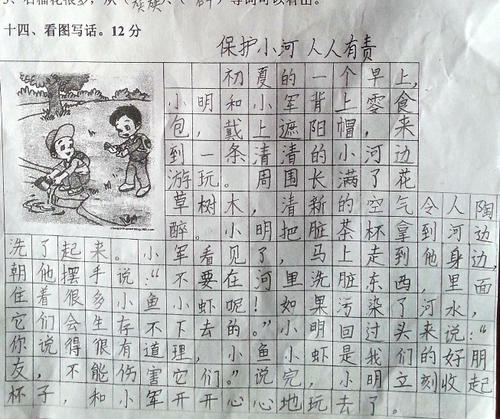 石榴花很多，从（簇簇）、（ ）等词可以看出。
十四、看图写话。12分
保护小河 人人有责
初夏的一个早上，
小明和小军背上零食
包，戴上遮阳帽，来
到一条清清的小河边
游玩。周围长满了花
草树木，清新的空气令人陶
醉。小明把脏茶杯拿到河边
洗了起来。小军看见了，马上走到他身边，
朝他摆手说：“不要在河里洗脏东西，里面
住着很多小鱼小虾呢！如果污染了河水，
它们会生存不下去的。”小明回过头来说：“
你说得很有道理，小鱼小虾是我们的好朋
友，不能伤害它们。”说完，小明立刻收起
杯子，和小军开开心心地玩去了。